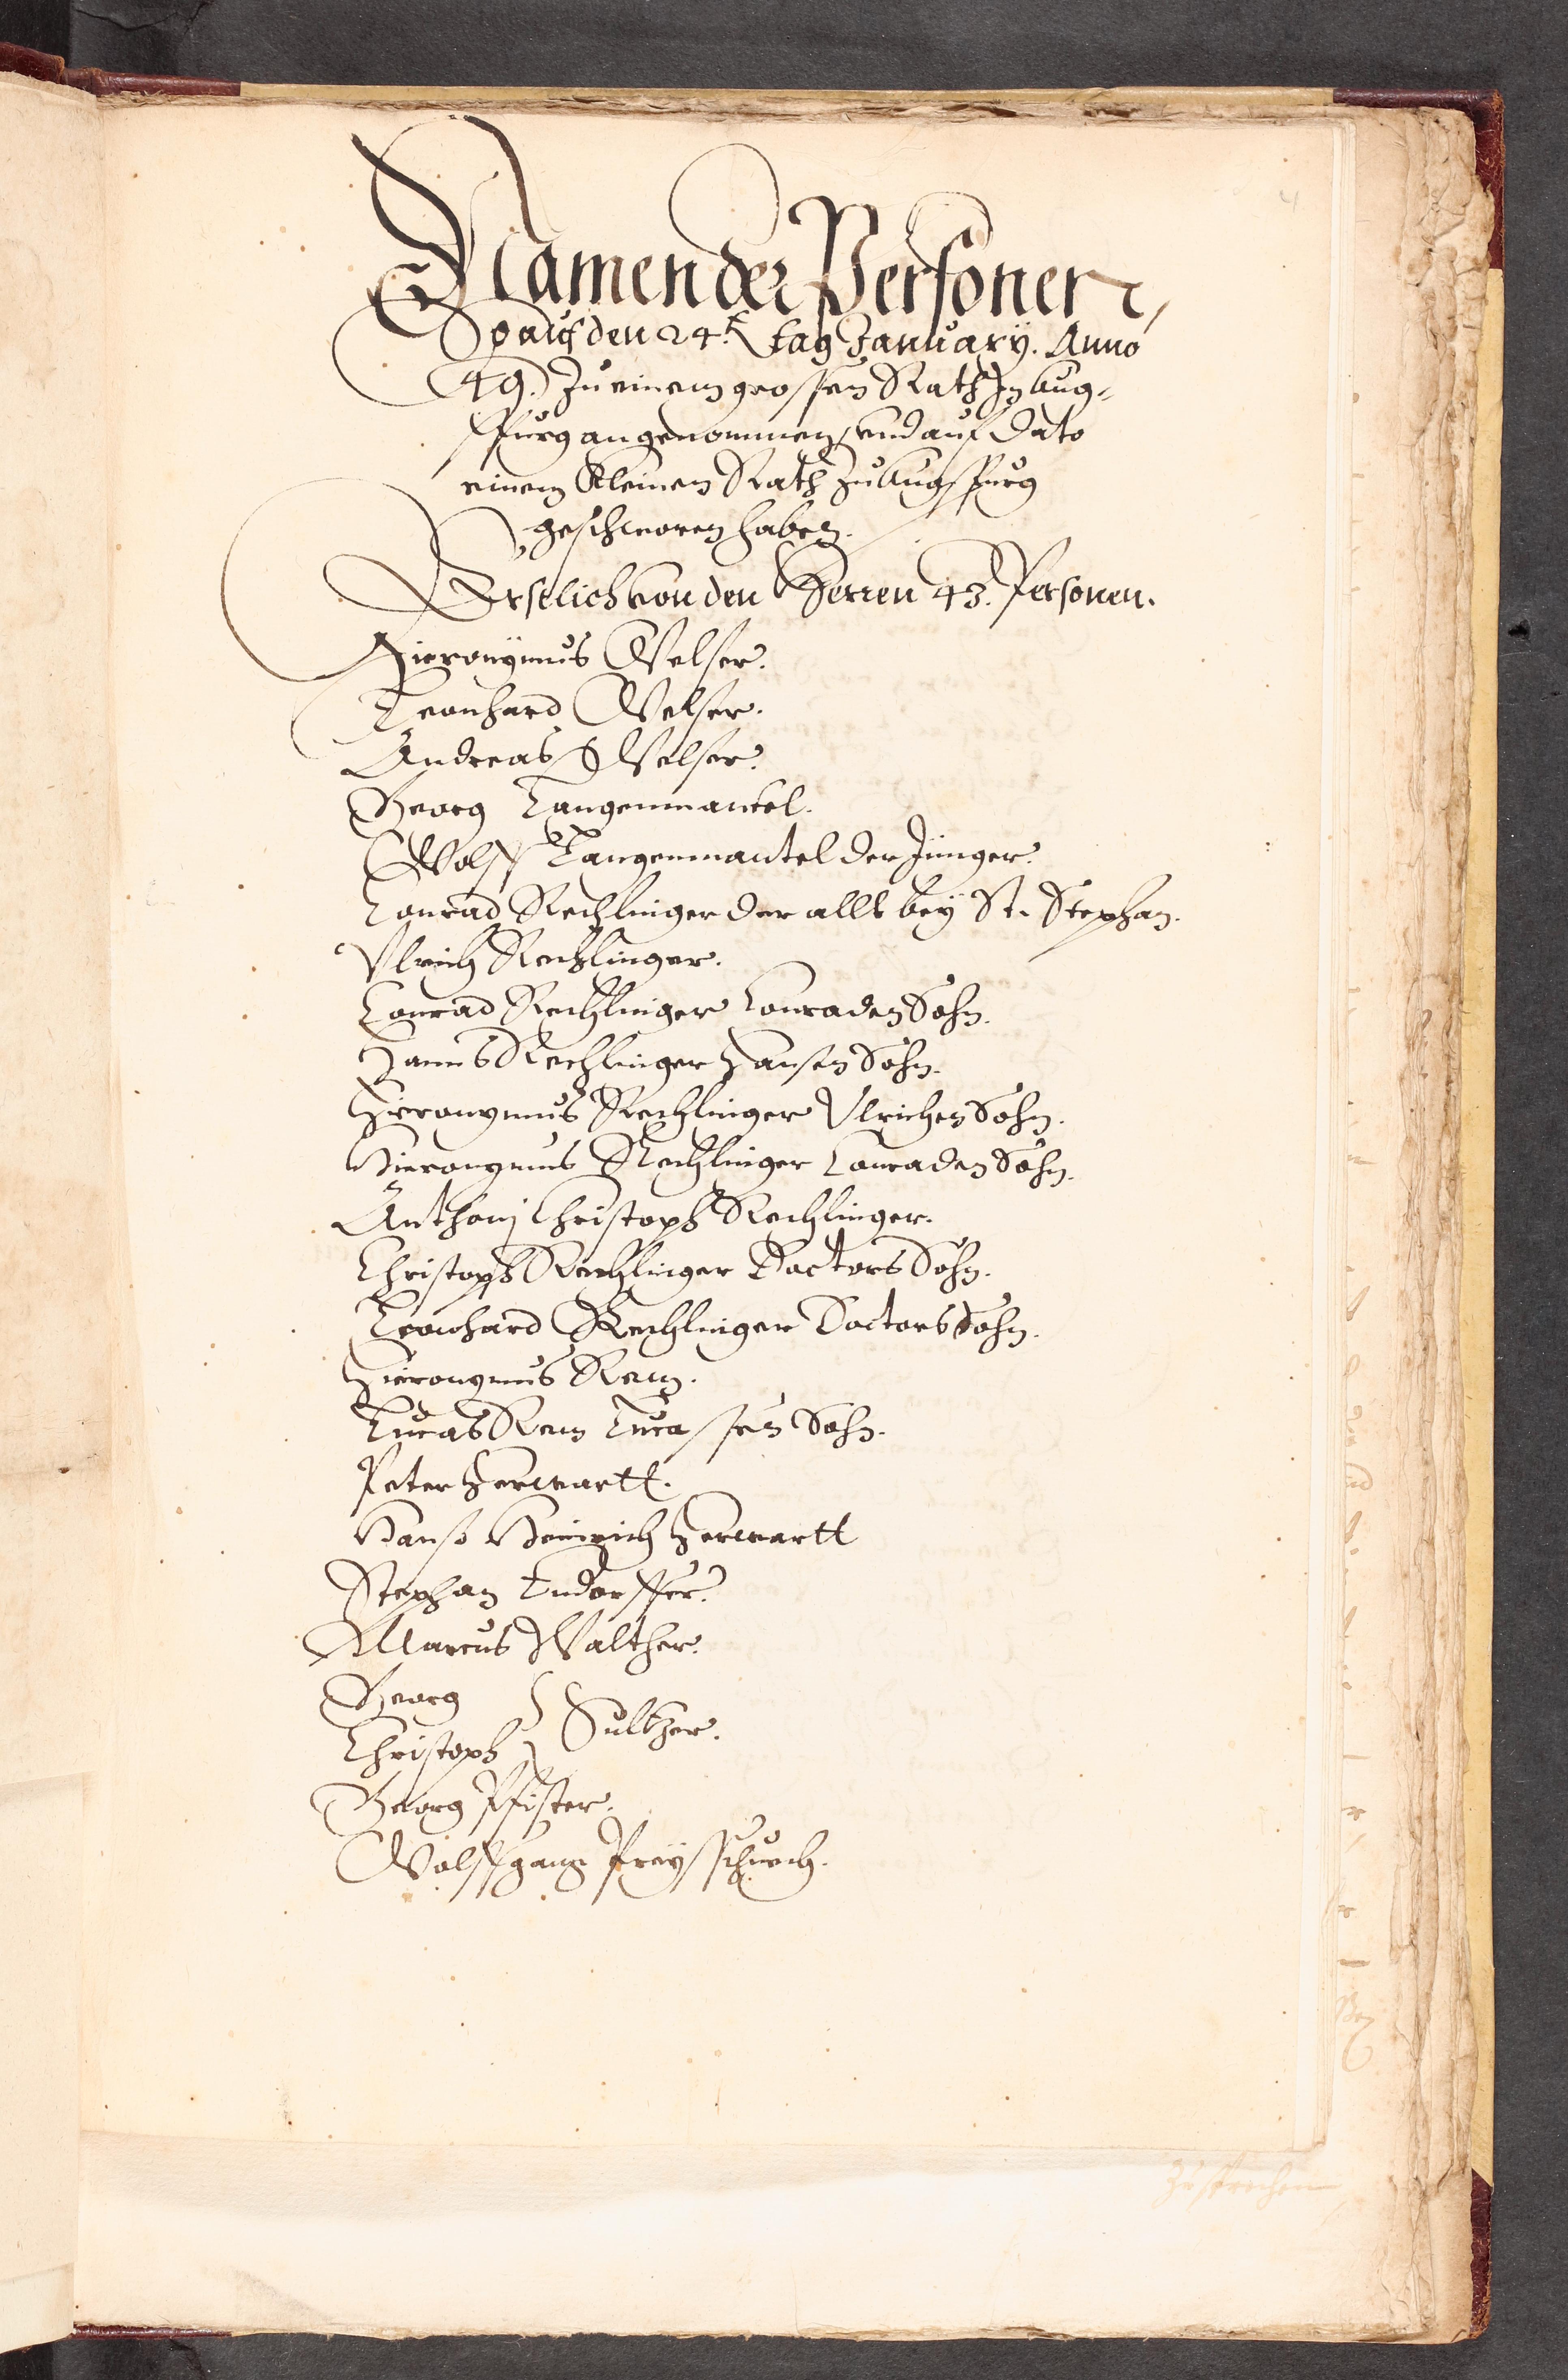 4
Namen der Personen,
So auf den 24.t tag January. Anno
49. Zu einem grossen Rath In Aug¬
spurg angenommen, und auf Dato
einem Kleinen Rath zu Augspurg
geschworen haben.
Erstlich von den Herren 43. Personen.
Hieronÿmus Welser.
Leonhard Welser.
Andreas Welser.
Georg Langenmantel.
Wolff Langenmantel der Jünger.
Conrad Rechlinger der allt beÿ St. Stephan.
Ulrich Rechlinger.
Conrad Rechlinger Conraden Sohn.
Hanns Rechlinger Hansen Sohn.
Hieronymus Rechlinger Ulrichen Sohn.
Hieronymus Rechlinger Conraden Sohn.
Anthonj Christoph Rechlinger.
Christoph Rechlinger Doctors Sohn.
Leonhard Rechlinger Doctors Sohn.
Hieronymus Rem.
Lucas Rem Lucassen Sohn.
Peter Herwartt.
Hanß Heinrich Herwartt
Stephan Endorffer.
Marcus Walther.
Georg
Christoph } Sultzer.
Georg Pfister.
Wolffgang Preyschuech.
zusprechen